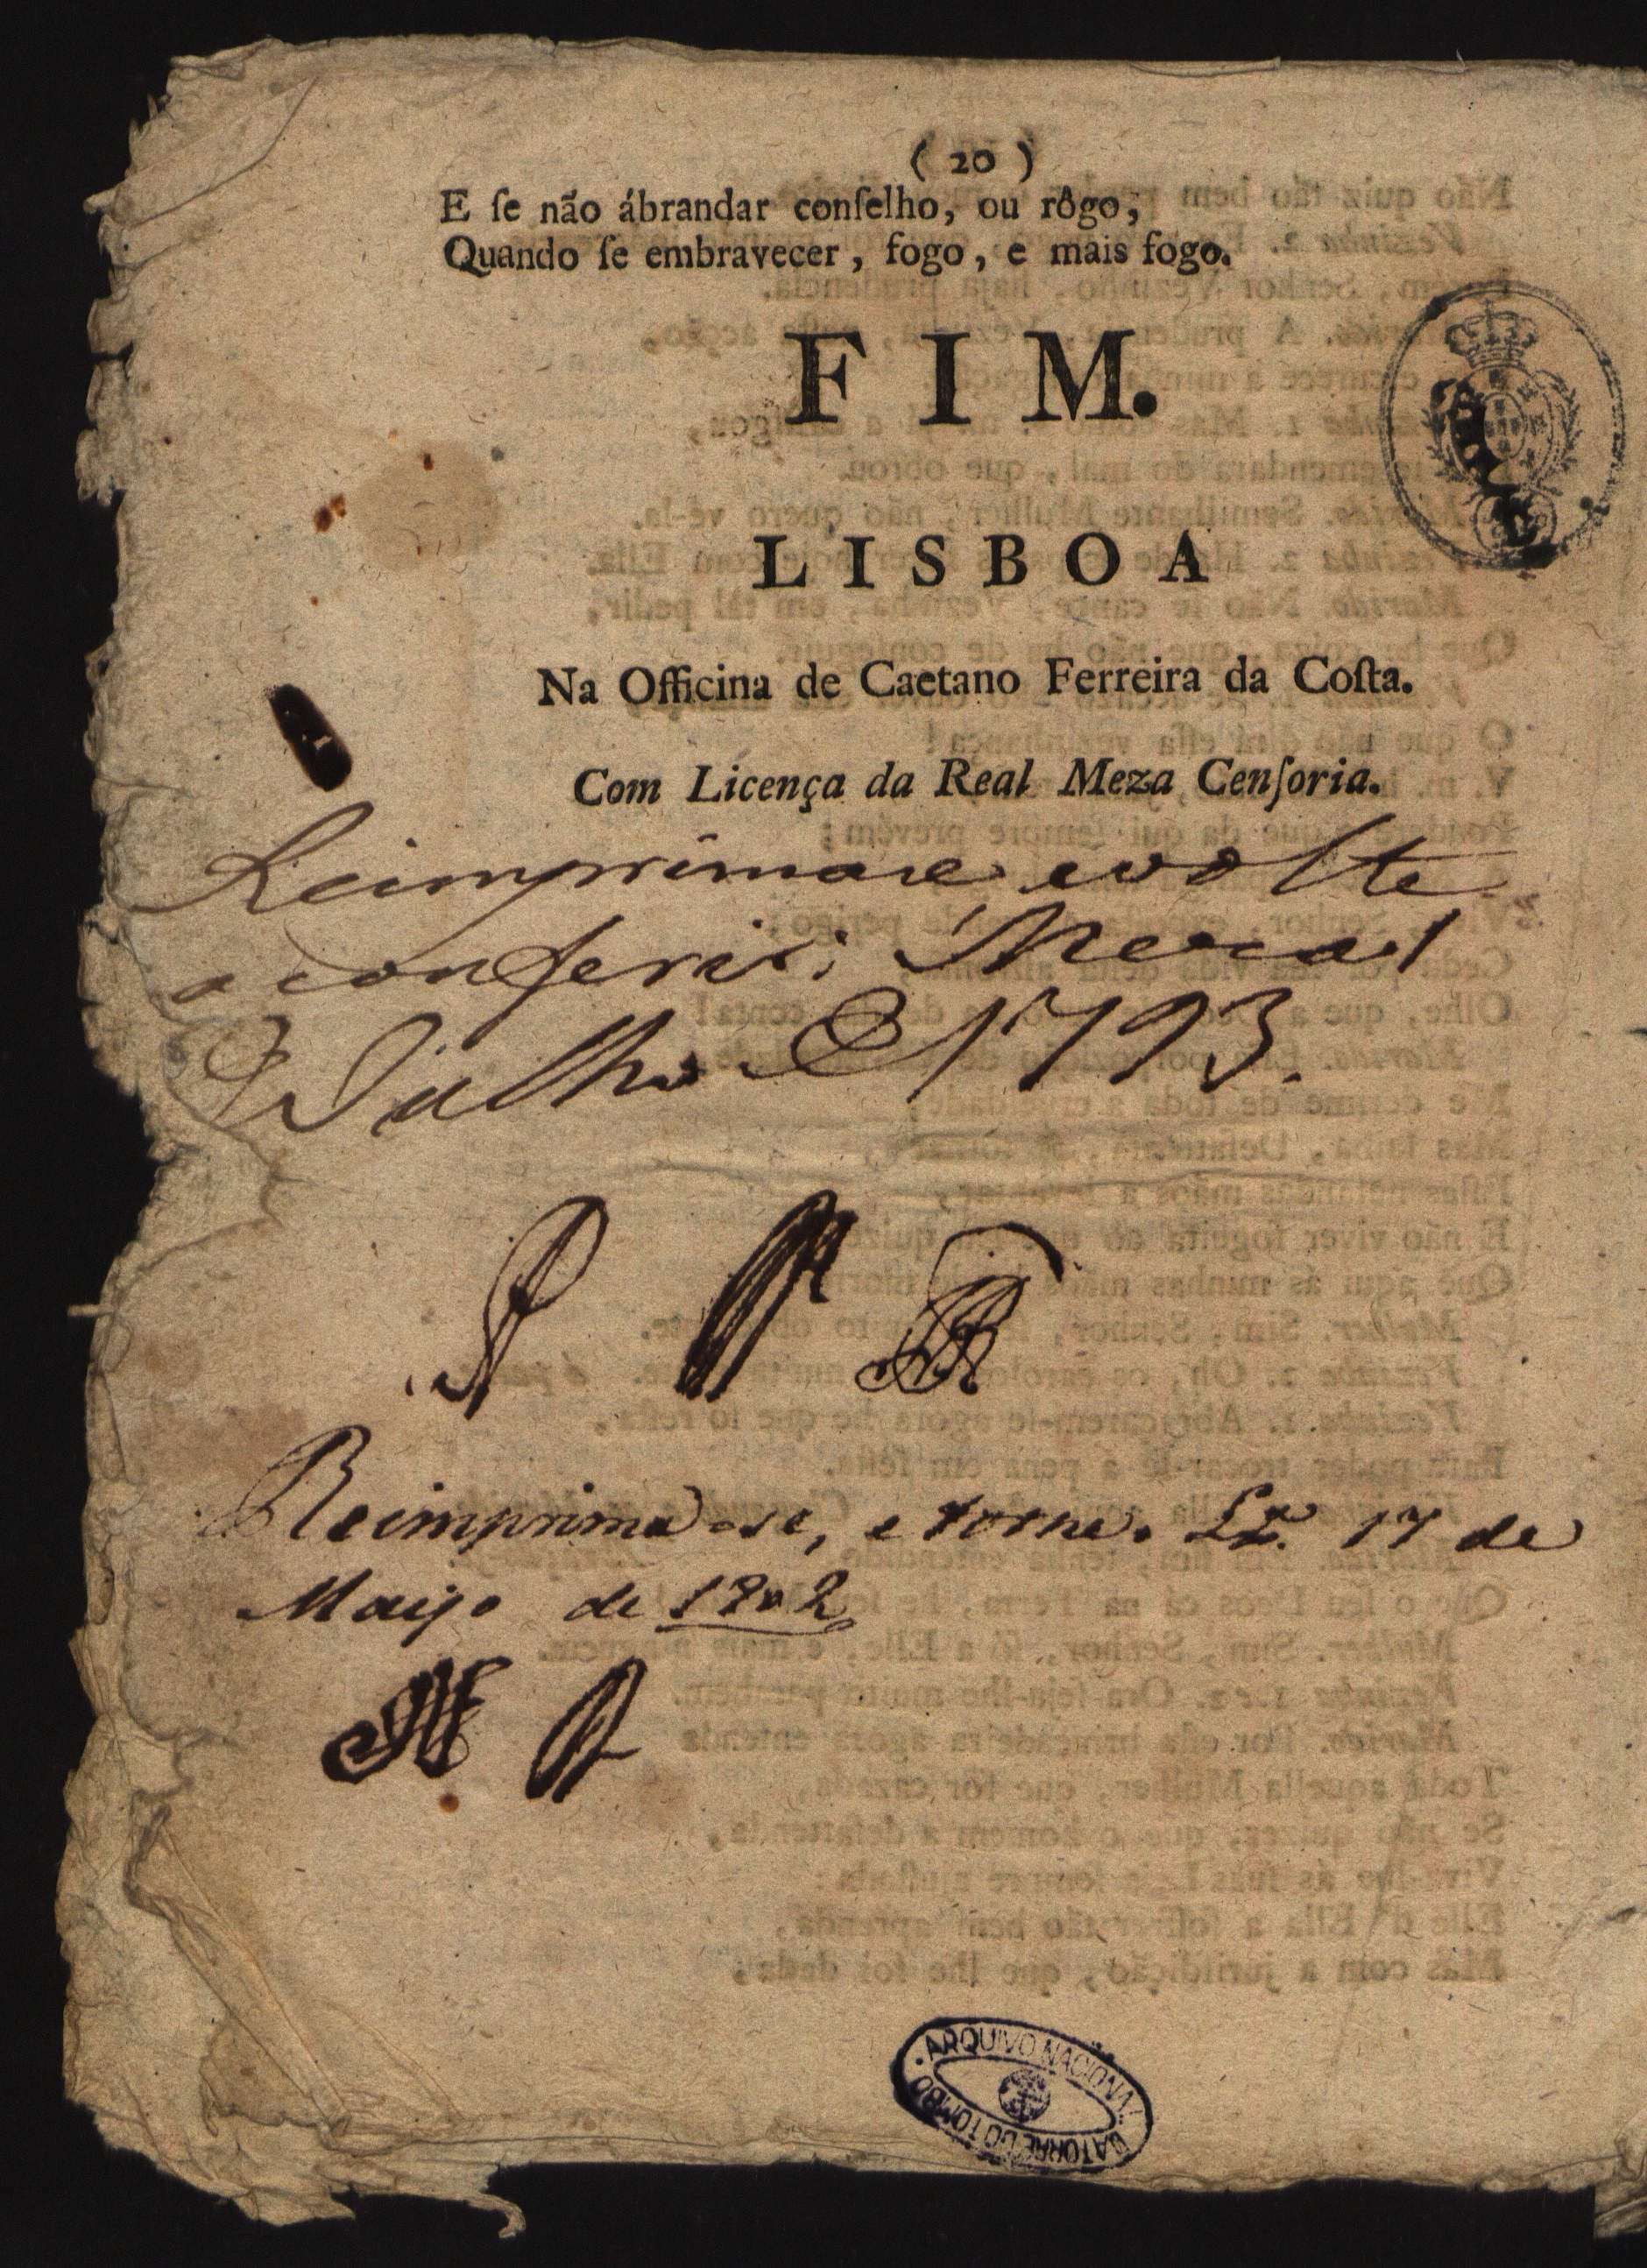 ( 20 )
E ſe não ábrandar conſelho, ou rôgo,
Quando ſe embravecer, fogo, e mais fogo.
FIM.
LISBOA
Na Officina de Caetano Ferreira da Coſta.
Com Licença da Real Meza Cenſoria.
Reimprimase e volte
a conferir; Meza 1
d Julho d 1793.
Reimprima-se, e torne. Lx.ª 17 de
Março de 1802
ARQUIVO NACIONAL DA TORRE DO TOMBO